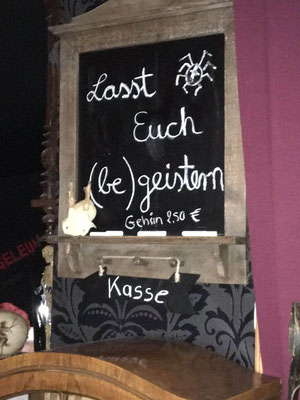 Lasst
Euch
(be)geistern
Gehirn 2.50 €
Kasse